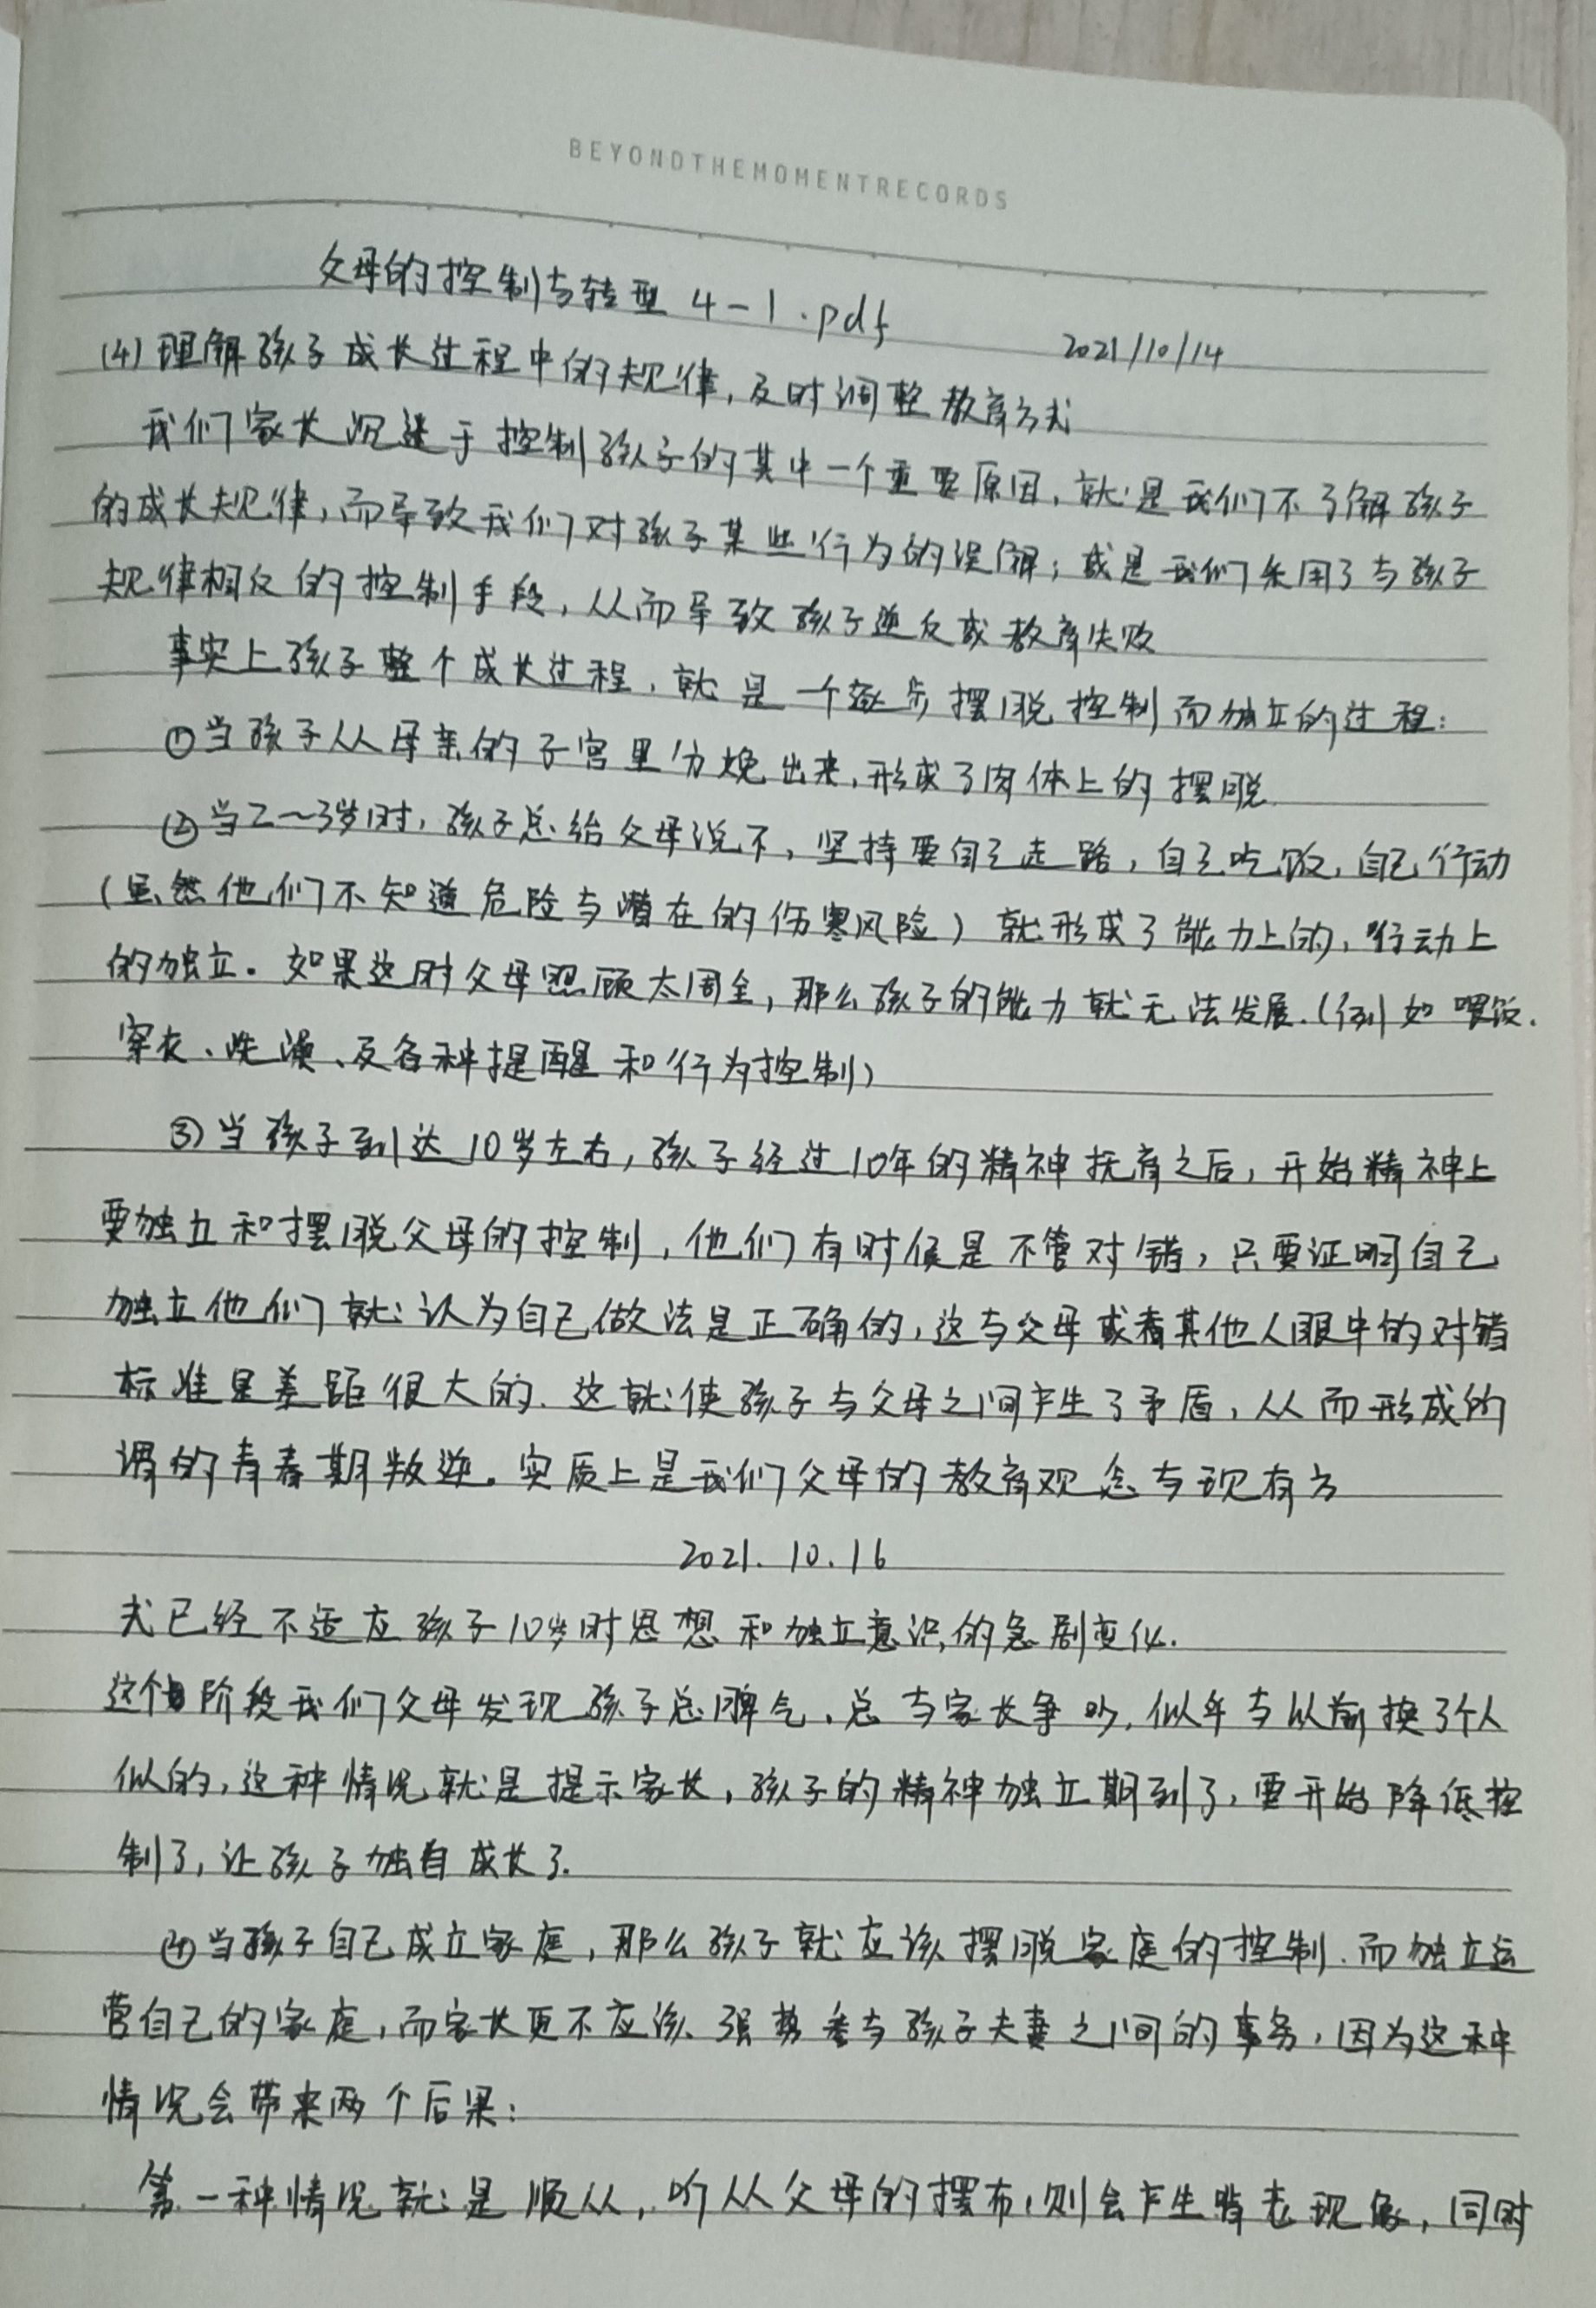 BEYONDTHEMOMENTRECORDS
父母的控制与转型 4-1.pdf
2021/10/14
(4)理解孩子成长过程中的规律,及时调整教育方式
我们家长沉迷于控制孩子的其中一个重要原因,就是我们不了解孩子
的成长规律,而导致我们对孩子某些行为的误解;或是我们采用了与孩子
规律相反的控制手段,从而导致孩子逆反或教育失败
事实上孩子整个成长过程,就是一个逐步摆脱控制而独立的过程:
①当孩子从母亲的子宫里分娩出来,形成了肉体上的摆脱
②当2~3岁时,孩子总给父母说不,坚持要自己走路,自己吃饭,自己行动
(虽然他们不知道危险与潜在的伤害风险)就形成了能力上的,行动上
的独立。如果这时父母照顾太周全,那么孩子的能力就无法发展.(例如喂饭.
穿衣、洗澡、及各种提醒和行为控制)
③当孩子到达10岁左右,孩子经过10年的精神抚育之后,开始精神上
要独立和摆脱父母的控制,他们有时候是不管对错,只要证明自己
独立他们就认为自己做法是正确的,这与父母或者其他人眼中的对错
标准是差距很大的.这就使孩子与父母之间产生了矛盾,从而形成的
谓的青春期叛逆。实质上是我们父母的教育观念与现有方
2021.10.16
式已经不适应孩子10岁时思想和独立意识的急剧变化.
这个阶段我们父母发现孩子总脾气、总与家长争吵,似乎与以前换了个人
似的,这种情况就是提示家长,孩子的精神独立期到了,要开始降低控
制了,让孩子独自成长了.
④当孩子自己成立家庭,那么孩子就应该摆脱家庭的控制.而独立运
营自己的家庭,而家长更不应该强势参与孩子夫妻之间的事务,因为这种
情况会带来两个后果:
第一种情况就是顺从,听从父母的摆布,则会产生啃老现象,同时